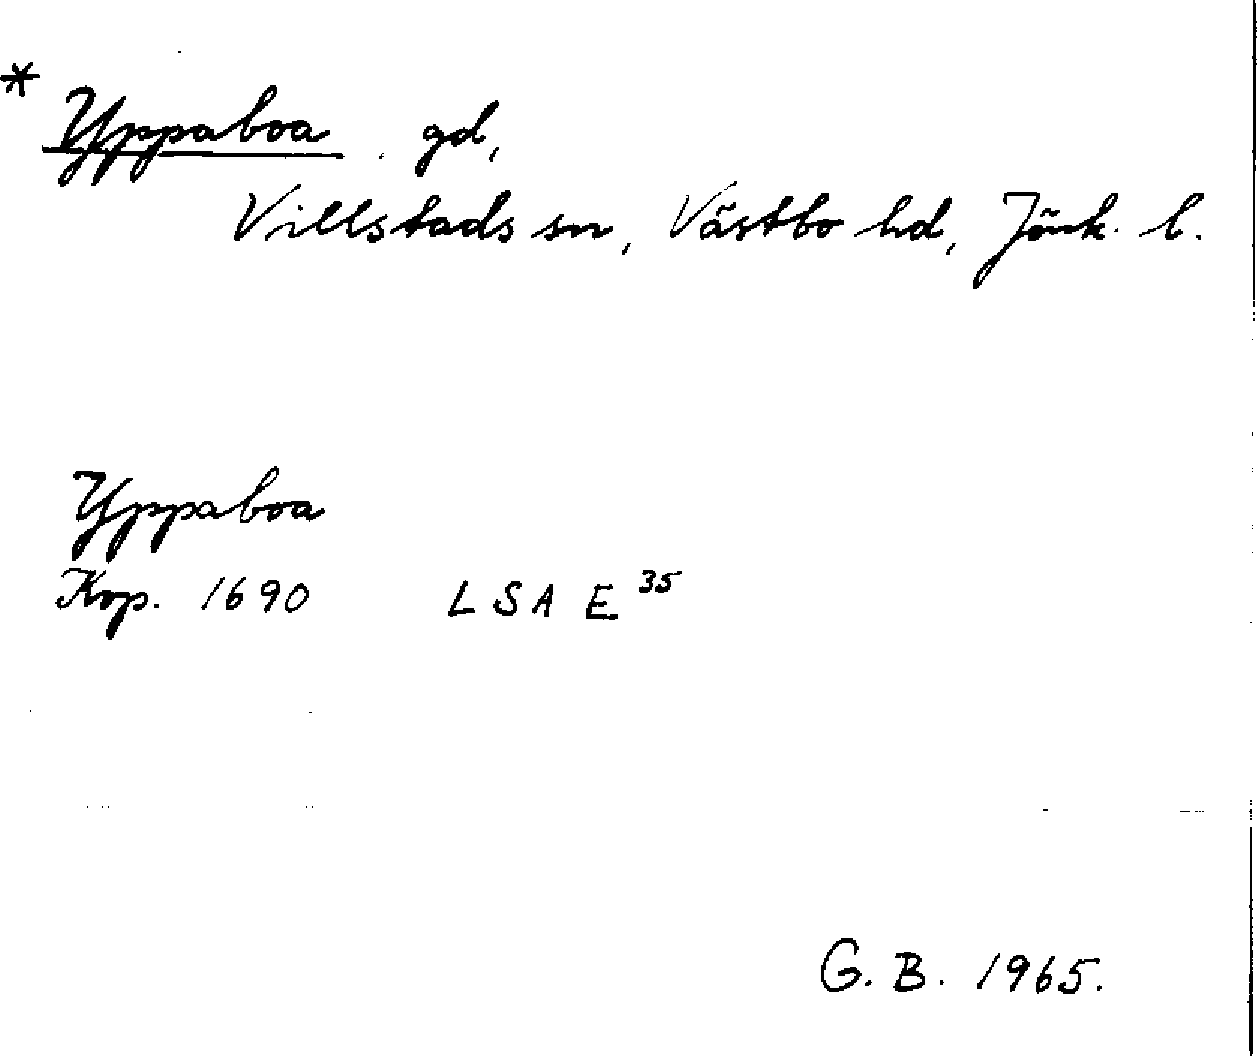 * Yppaboa gd,
Villstads sn, Västbo hd, Jönk. l.
Yppaboa
Kop. 1690 LSA E 35
G. B. 1965.